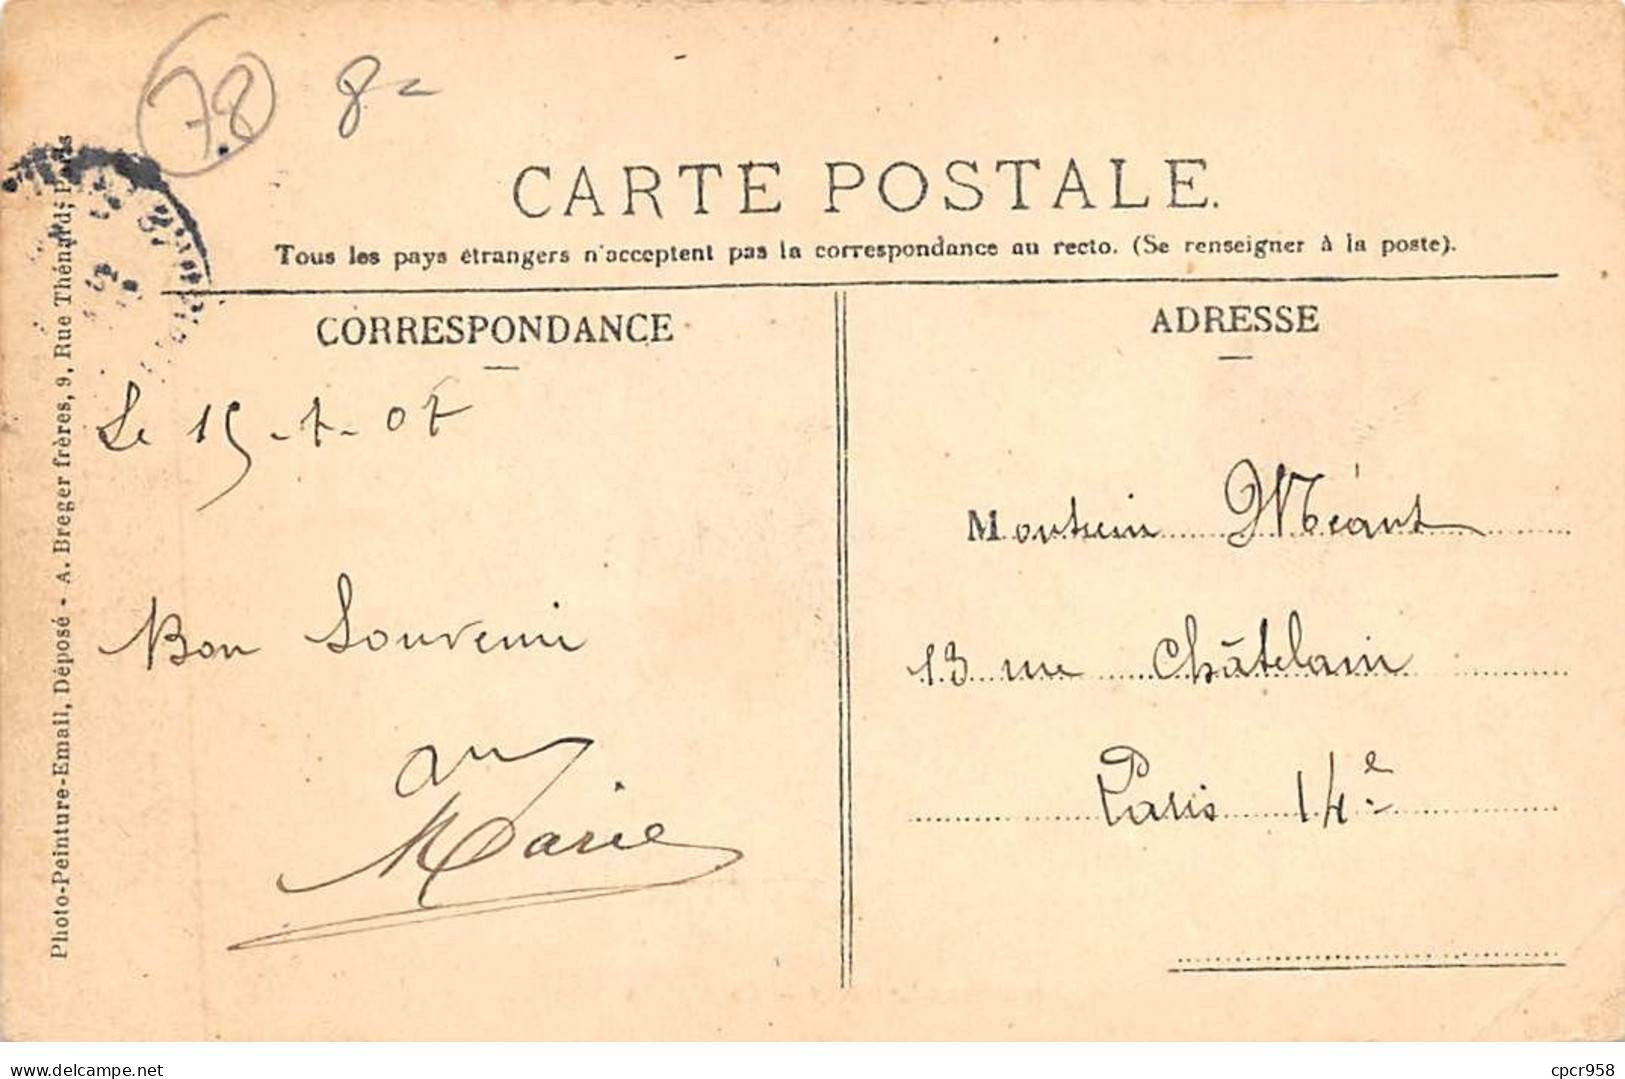 78 8=
CARTE POSTALE.
Tous les pays étrangers n'acceptent pas la correspondance au recto. (Se renseigner à la poste).
Photo-Peinture-Email, Déposé - A. Breger frères, 9, Rue Thénard, Paris
CORRESPONDANCE
Le 15-7-07
Bon Souvenir
Marie
ADRESSE
Monsieur Méant
13 rue Châtelain
Paris 14e
www.delcampe.net
cpcr958